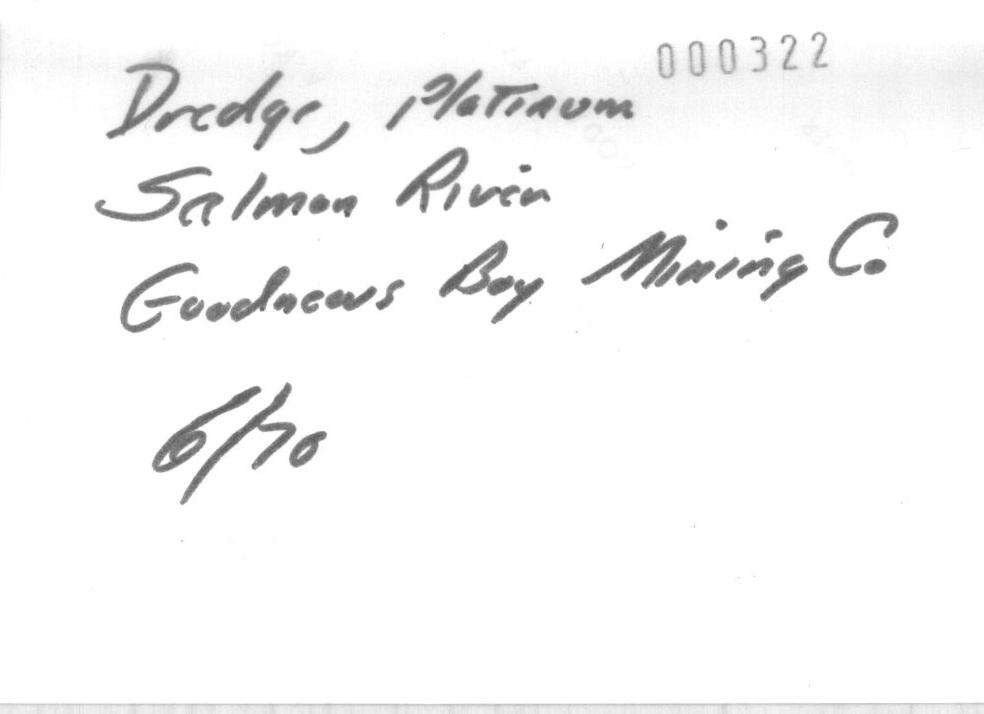 000322
Dredge, Platinum
Salmon River
Goodnews Bay Mining Co
6/70